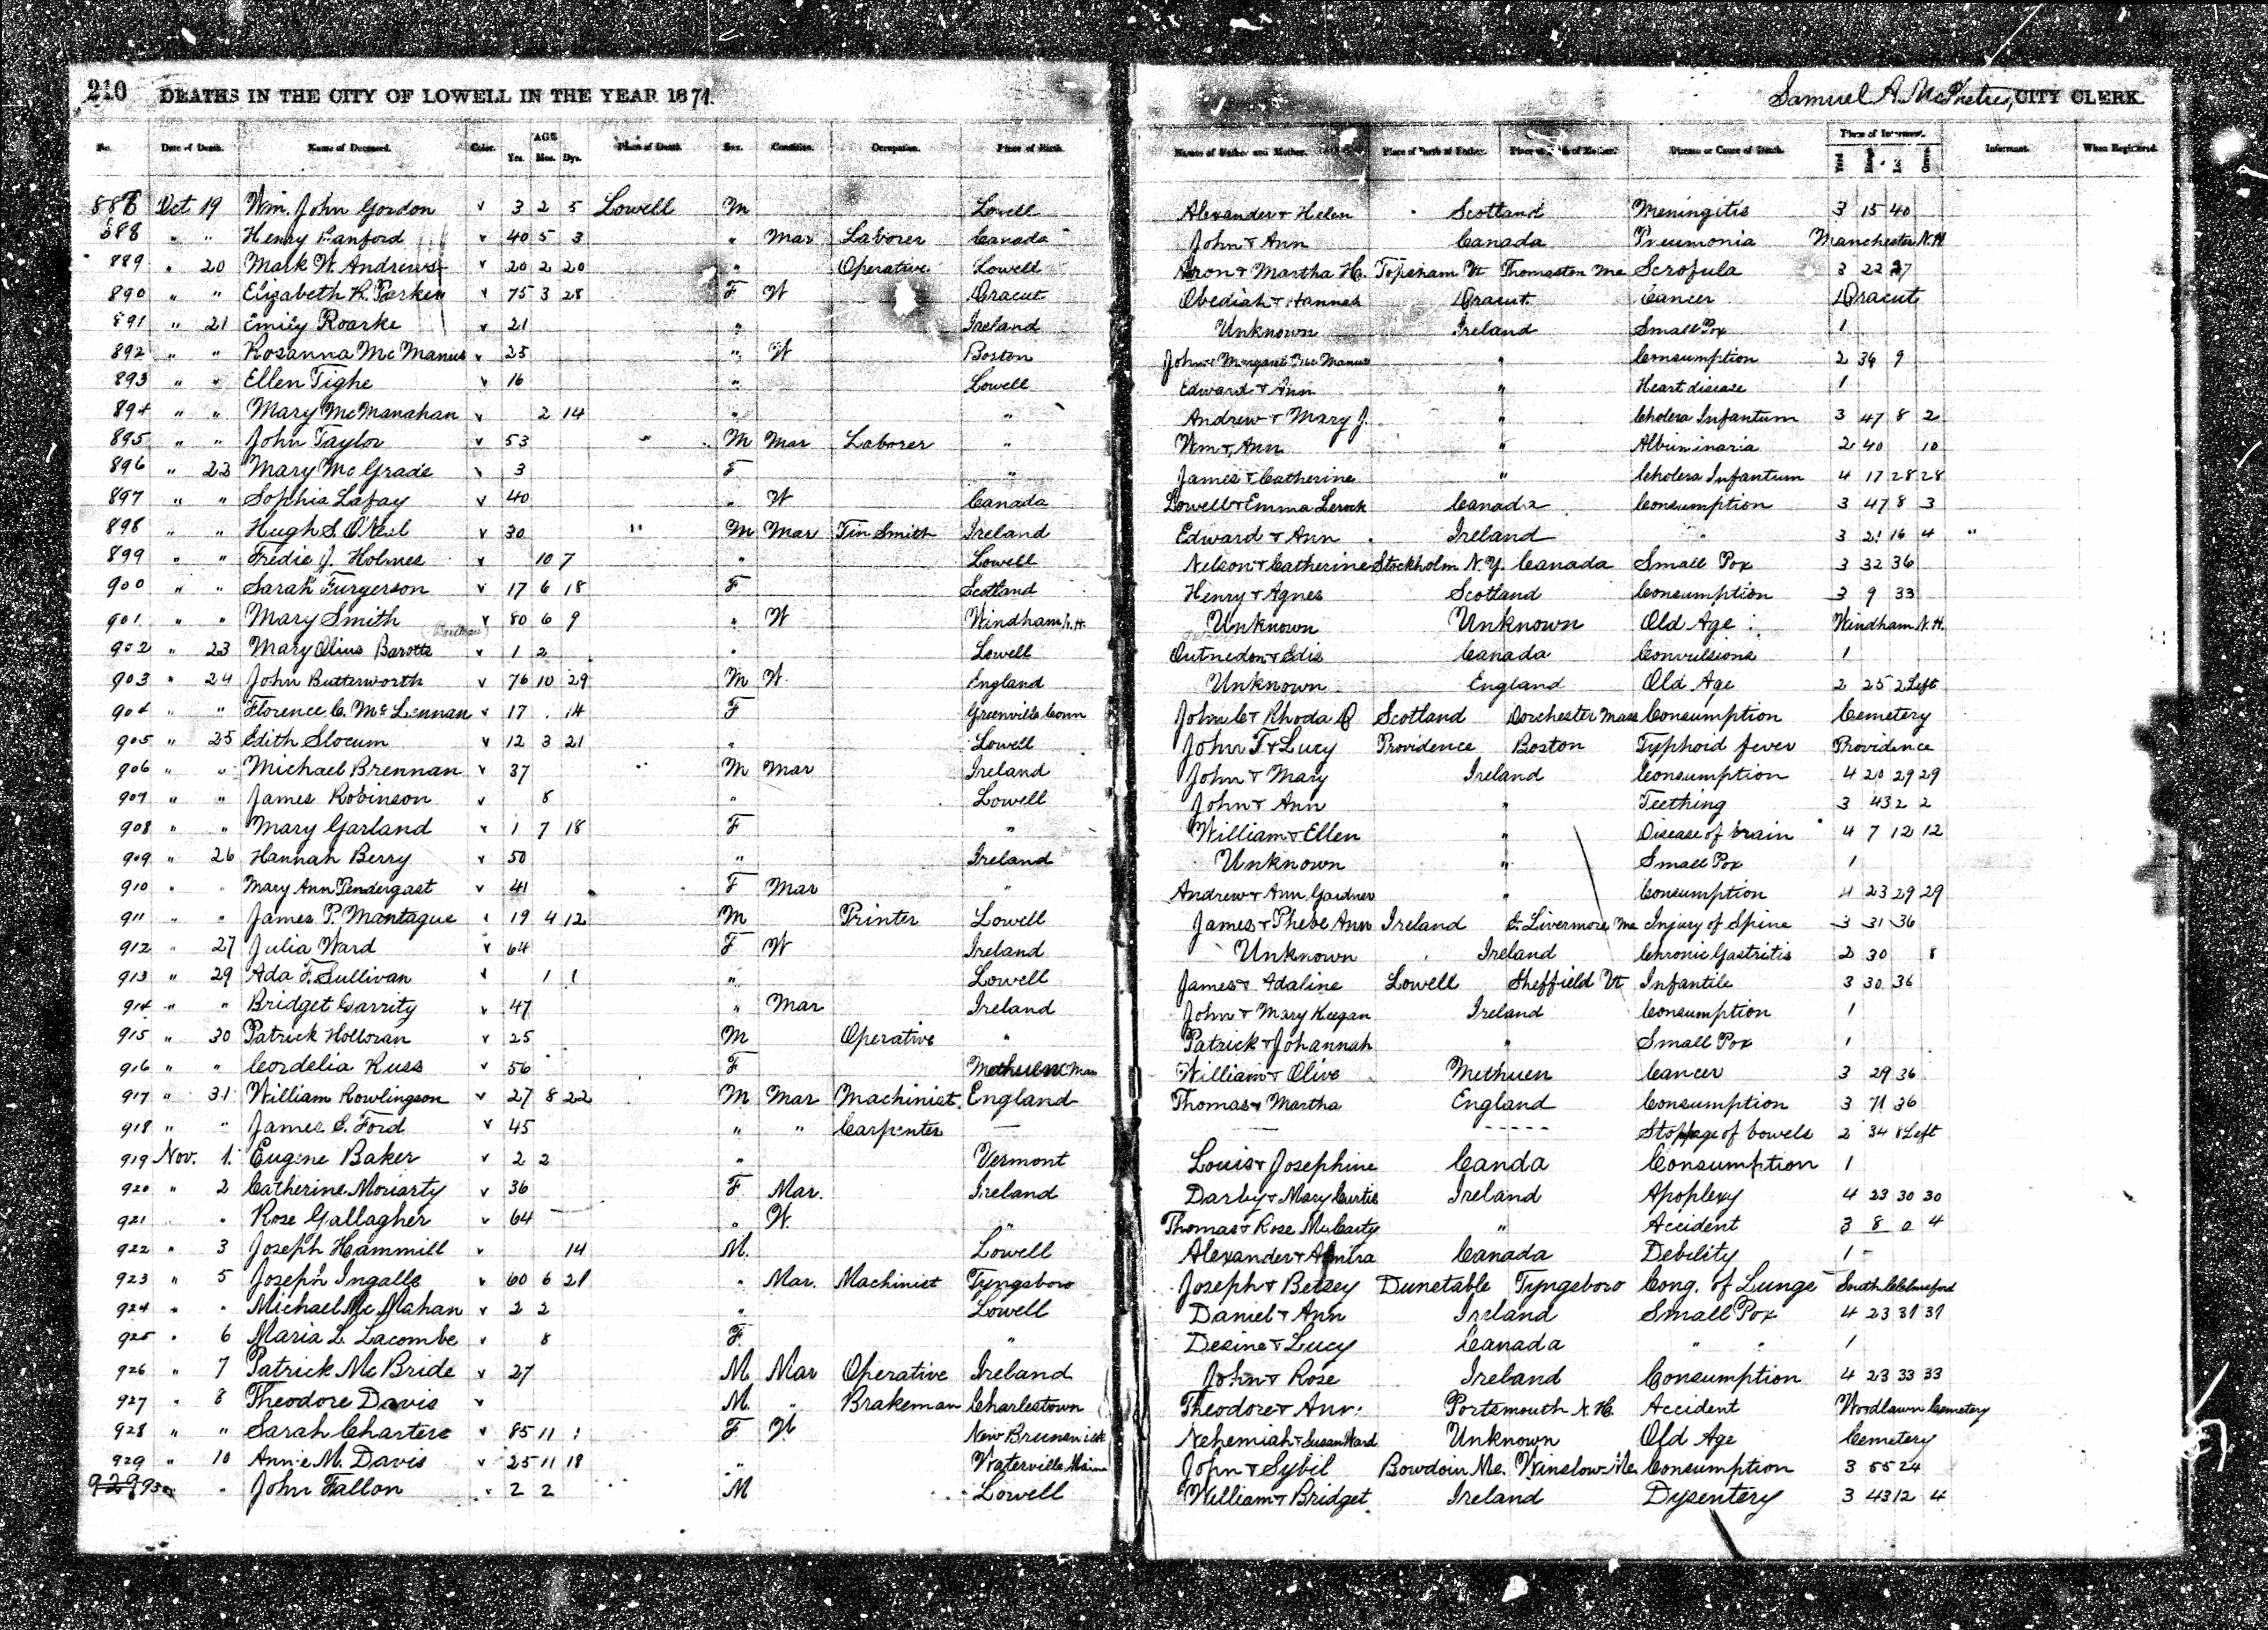 210 DEATHS IN THE CITY OF LOWELL IN THE YEAR 1871. Samuel A. McPhetres, CITY CLERK.
No. Date of Death. Name of Deceased. Color. AGE Yrs. Mos. Dys. Place of Death Sex. Condition. Occupation. Place of Birth. Names of Father and Mother. Place of Birth of Father. Place of Birth of Mother. Disease or Cause of Death. Place of Interment. Informant. When Registered.
Oct 19 Wm. John Gordon v 3 2 5 Lowell M Lowell Alexander & Helen Scotland Meningitis 3 15 40
888 " " Henry v 40 5 3 " Mar Laborer Canada John & Ann Canada Pneumonia Manchester N.H.
889 " 20 Mark W. Andrews v 20 2 20 " Operative Lowell Aron & Martha H. Topsham Vt Thomaston Me Scrofula 3 22 27
890 " " Elizabeth K. Parker v 75 3 28 F W Dracut Obediah & Hannah Dracut Cancer Dracut
891 " 21 Emily Roarke v 21 " Ireland Unknown Ireland Small Pox 1
892 " " Rosanna McManus v 25 " W Boston John & Margaret McManus " Consumption 2 34 9
893 " " Ellen Tighe v 16 " Lowell Edward & Ann " Heart disease 1
894 " " Mary McManahan v 2 14 " " Andrew & Mary J. " Cholera Infantum 3 47 8 2
895 " " John Taylor v 53 " M Mar Laborer " Wm & Ann " Albuminaria 2 40 10
896 " 22 Mary McGrade v 3 F " James & Catherine " Cholera Infantum 4 17 28 28
897 " " Sophia Lafay v 40 " W Canada Lowell & Emma Lerock Canada Consumption 3 47 8 3
898 " " Hugh S. O'Neil v 30 " M Mar Tin Smith Ireland Edward & Ann Ireland " 3 21 16 4 "
899 " " Fredie J. Holmes v 10 7 " Lowell Nelson & Catherine Stockholm N.Y. Canada Small Pox 3 32 36
900 " " Sarah Furgerson v 17 6 18 F Scotland Henry & Agnes Scotland Consumption 3 9 33
901 " " Mary Smith v 80 6 9 " W Windham N.H. Unknown Unknown Old Age Windham N.H.
902 " 23 Mary Olius Barotte v 1 2 " Lowell Canada Convulsions 1
903 " 24 John Butterworth v 76 10 29 M W England Unknown England Old Age 2 25 2 Left
904 " " Florence C. McLennan v 17 . 14 F Greenville Conn John C & Rhoda Scotland Dorchester Mass Consumption Cemetery
905 " 25 Edith Slocum v 12 3 21 " Lowell John T & Lucy Providence Boston Typhoid fever Providence
906 " " Michael Brennan v 37 " M Mar Ireland John & Mary Ireland Consumption 4 20 29 29
907 " " James Robinson v 8 " Lowell John & Ann " Teething 3 43 2 2
908 " " Mary Garland v 1 7 18 F " William & Ellen " Disease of brain 4 7 12 12
909 " 26 Hannah Berry v 50 " Ireland Unknown " Small Pox 1
910 " " Mary Ann Pendergast v 41 F Mar " Andrew & Ann Gardner " Consumption 4 23 29 29
911 " " James P. Mantague v 19 4 12 M Printer Lowell James & Phebe Ann Ireland E. Livermore Me Injury of Spine 3 31 36
912 " 27 Julia Ward v 64 F W Ireland Unknown Ireland Chronic Gastritis 2 30 8
913 " 29 Ada F. Sullivan v 1 1 " Lowell James & Adaline Lowell Sheffield Vt Infantile 3 30 36
914 " " Bridget Garrity v 47 " Mar Ireland John & Mary Keegan Ireland Consumption 1
915 " 30 Patrick Holloran v 25 M Operative " Patrick & Johannah " Small Pox 1
916 " " Cordelia Russ v 56 F Methuen Mass William & Olive Methuen Cancer 3 29 36
917 " 31 William Rowlingson v 27 8 22 M Mar Machinist England Thomas & Martha England Consumption 3 71 36
918 " " James S. Ford v 45 " " Carpenter — — ----- Stoppage of bowels 2 34 8 Left
919 Nov. 1. Eugene Baker v 2 2 " Vermont Louis & Josephine Canda Consumption 1
920 " 2 Catherine Moriarty v 36 F Mar. Ireland Darby & Mary Curtis Ireland Apoplexy 4 23 30 30
921 " " Rose Gallagher v 64 " W. " Thomas & Rose McCarty " Accident 3 8 0 4
922 " 3 Joseph Hammill v 14 M. Lowell Alexander & Canada Debility 1
923 " 5 Joseph Ingalls v 60 6 21 " Mar. Machinist Tyngsboro Joseph & Betsey Dunstable Tyngsboro Cong. of Lungs South Chelmsford
924 " " Michael McMahan v 2 2 " Lowell Daniel & Ann Ireland Small Pox 4 23 31 31
925 " 6 Maria L. Lacombe v 8 F. " Desine & Lucy Canada " " 1
926 " 7 Patrick McBride v 27 M Mar Operative Ireland John & Rose Ireland Consumption 4 23 33 33
927 " 8 Theodore Davis v M. " Brakeman Charlestown Theodore & Ann Portsmouth N.H. Accident Woodlawn Cemetery
928 " " Sarah Charters v 85 11 1 F W New Brunswick Nehemiah & Susan Ward Unknown Old Age Cemetery
929 " 10 Annie M. Davis v 25 11 18 " Waterville Maine John & Sybil Bowdoin Me. Winslow Me. Consumption 3 55 24
929 930 " John Fallon " 2 2 M Lowell William & Bridget Ireland Dysentery 3 43 12 4